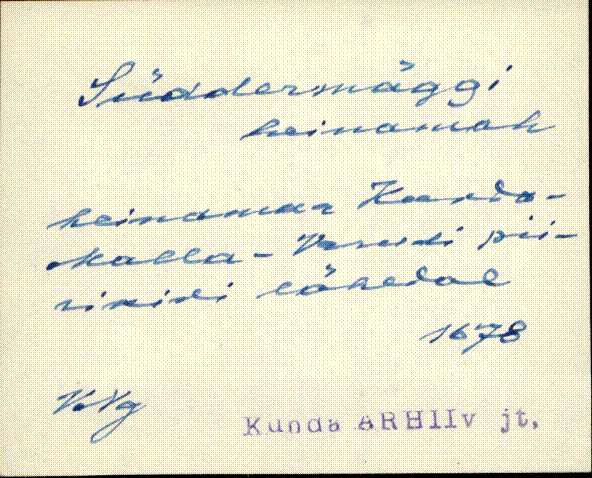 Süddermäggi
heinamah
heinamaa Kunda-
Malla-Varudi pii-
riristi lähedal
1678
VNg
Kunda ARHIIv jt,